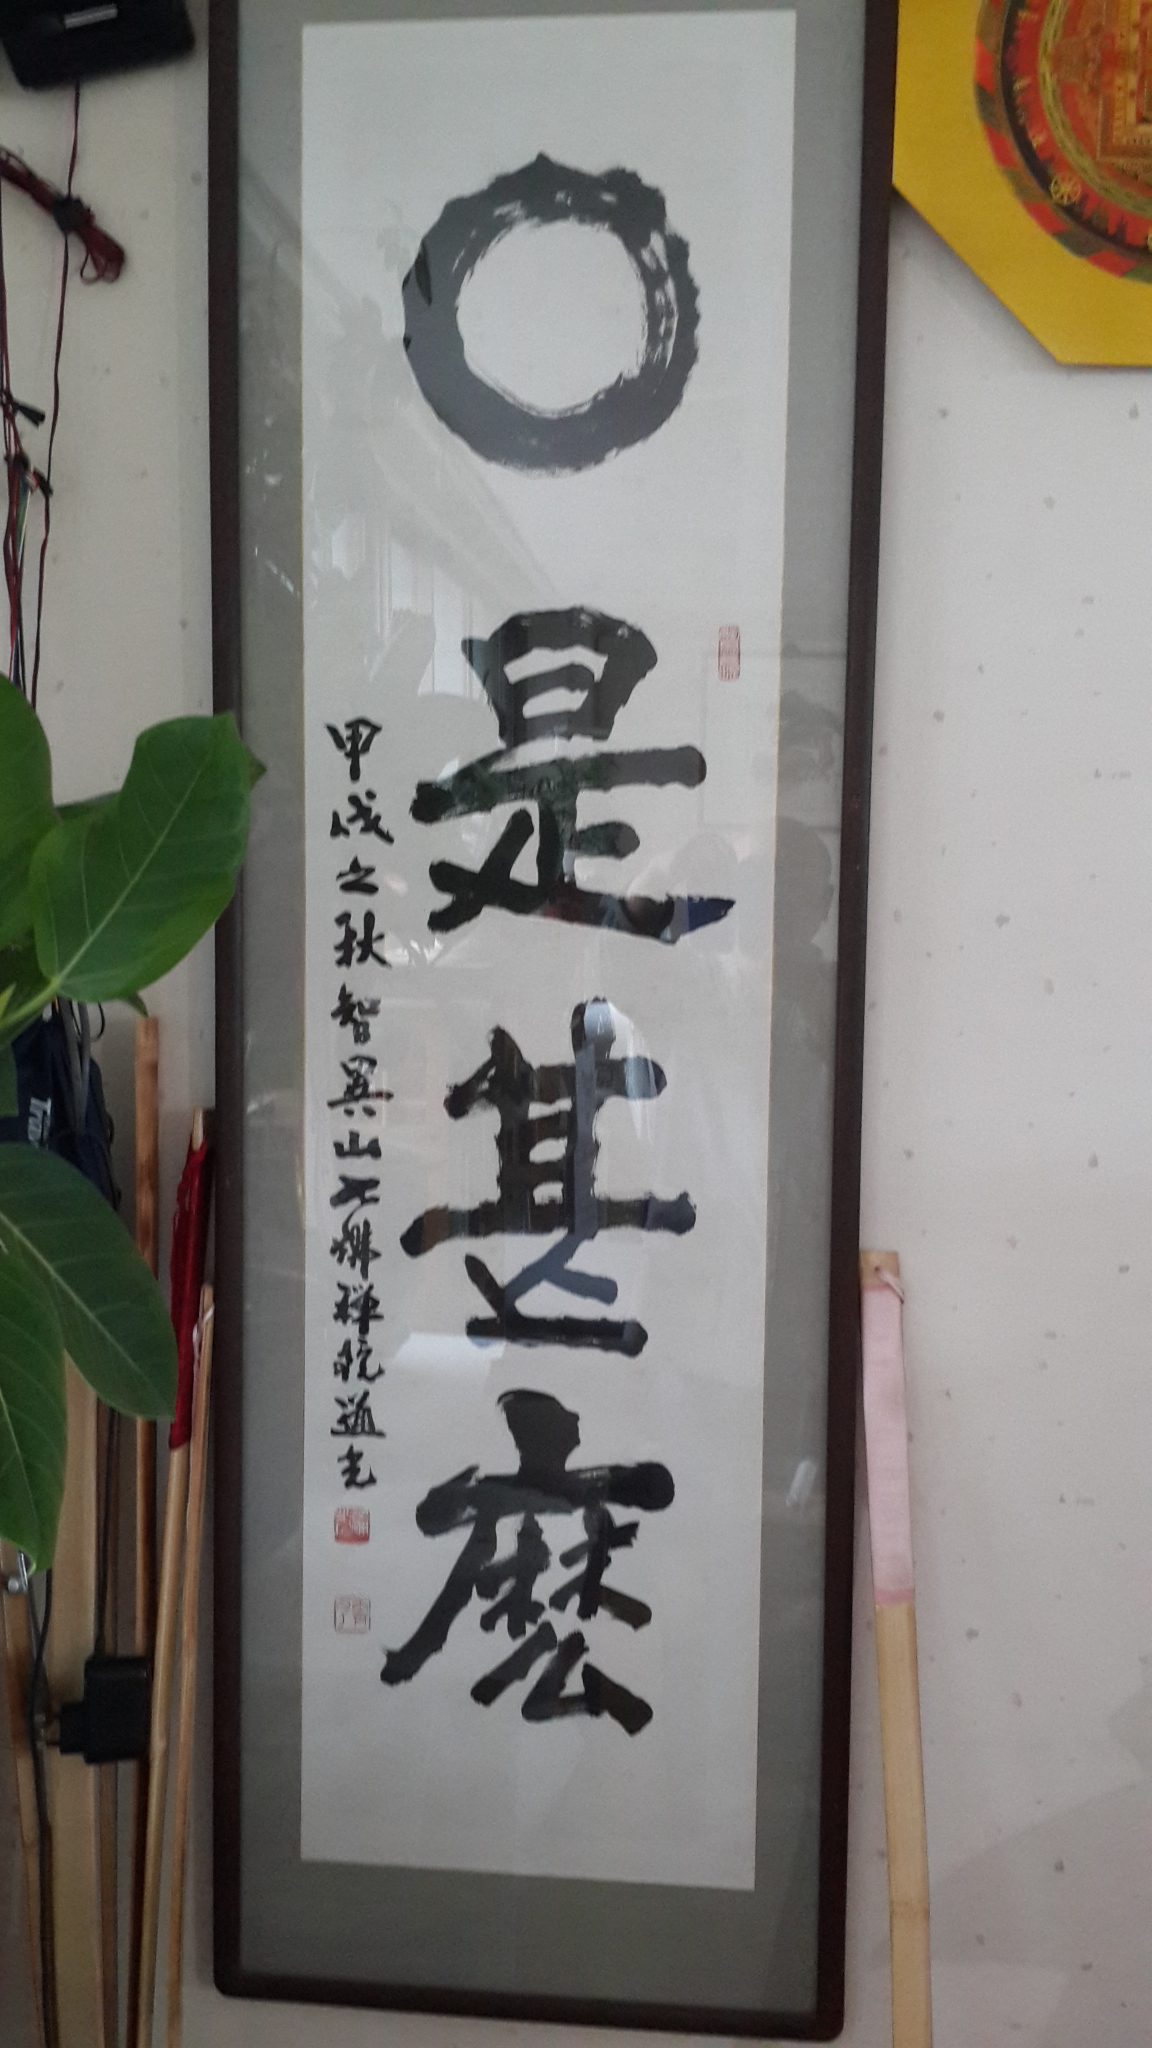 是甚麽
甲戌之秋智異山七佛禪院道光